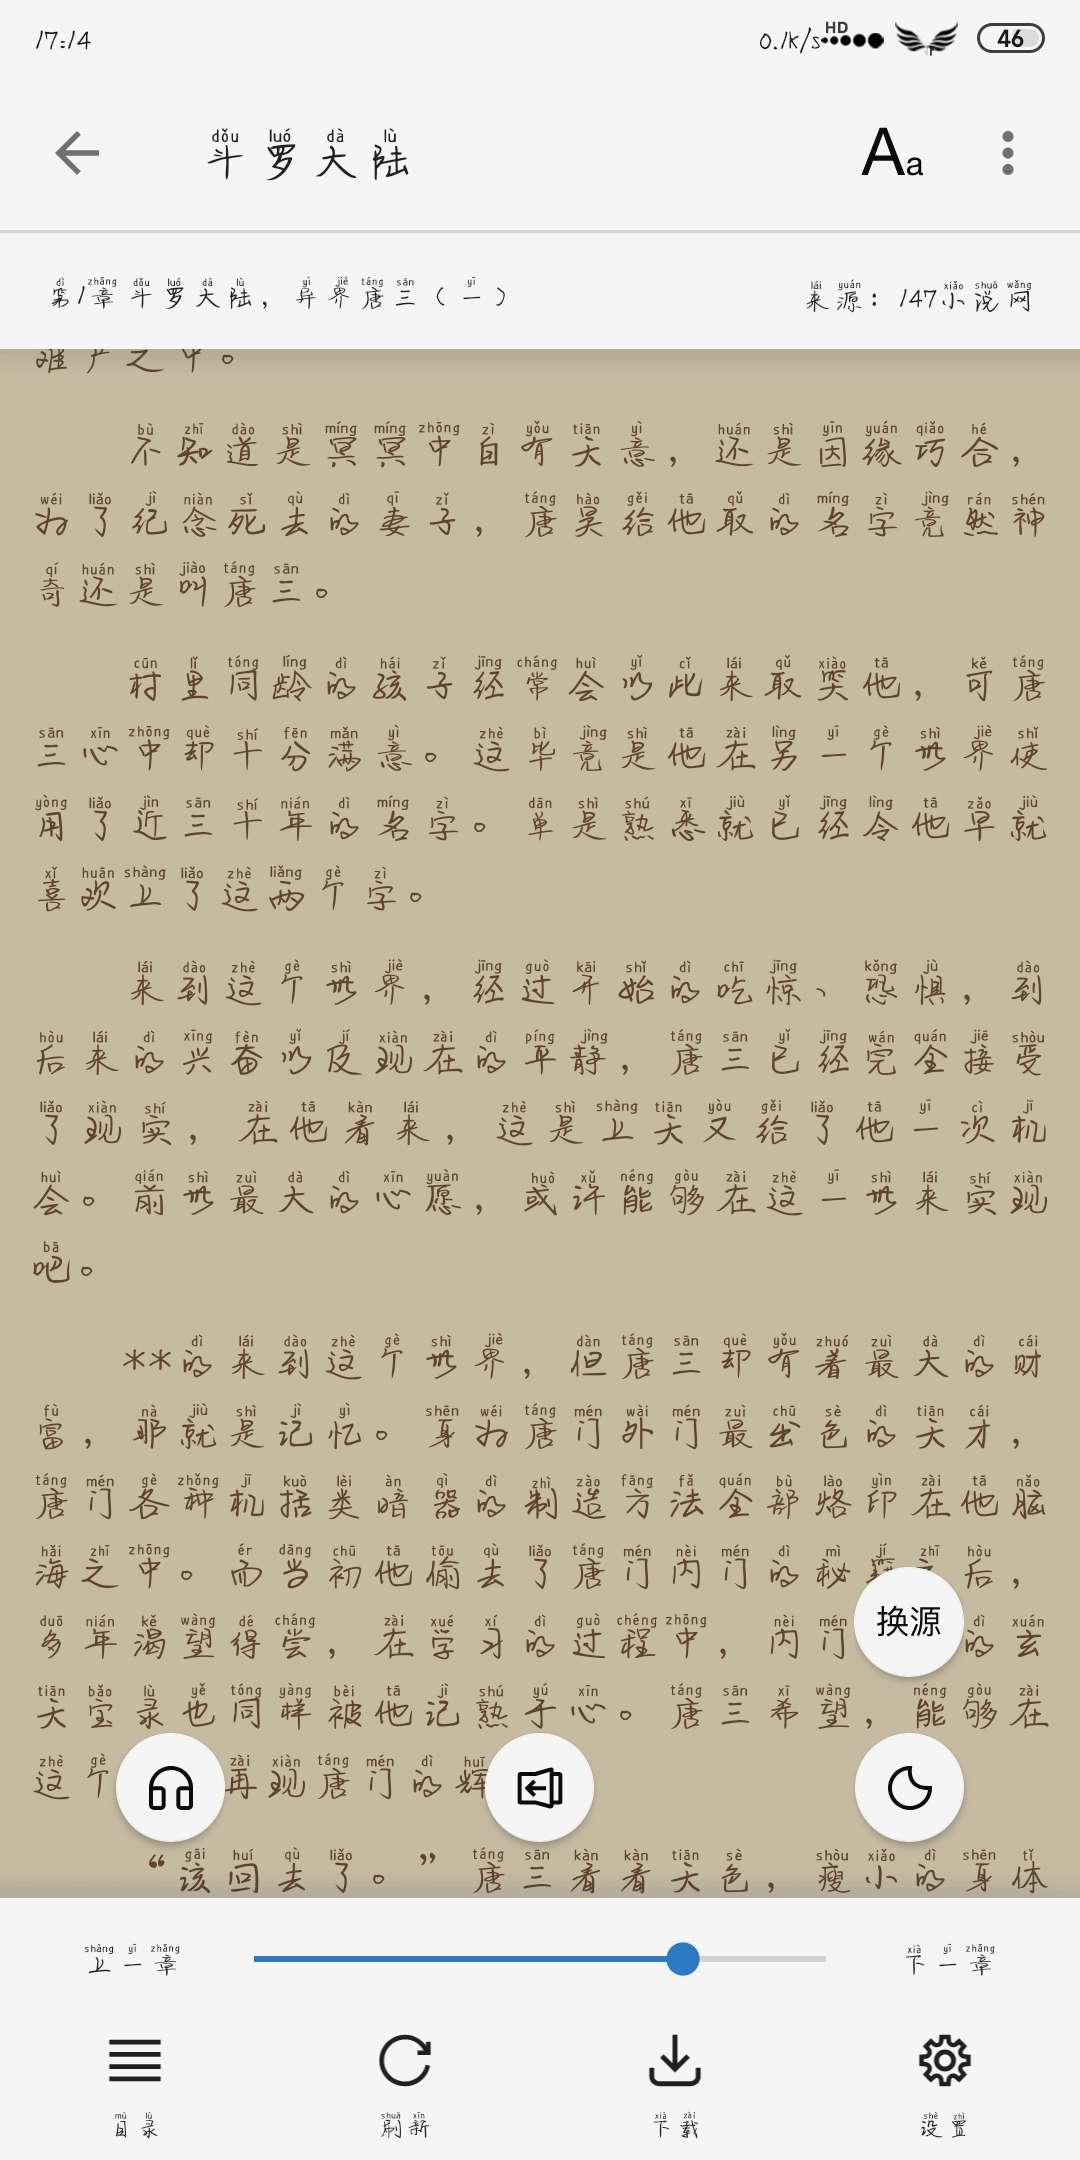 17:14 0.1K/s HD 46
斗罗大陆 Aa
第1章斗罗大陆，异界唐三（一） 来源：147小说网
难产之中。
不知道是冥冥中自有天意，还是因缘巧合，
为了纪念死去的妻子，唐昊给他取的名字竟然神
奇还是叫唐三。
村里同龄的孩子经常会以此来取笑他，可唐
三心中却十分满意。这毕竟是他在另一个世界使
用了近三十年的名字。单是熟悉就已经令他早就
喜欢上了这两个字。
来到这个世界，经过开始的吃惊、恐惧，到
后来的兴奋以及现在的平静，唐三已经完全接受
了现实，在他看来，这是上天又给了他一次机
会。前世最大的心愿，或许能够在这一世来实现
吧。
**的来到这个世界，但唐三却有着最大的财
富，那就是记忆。身为唐门外门最出色的天才，
唐门各种机括类暗器的制造方法全部烙印在他脑
海之中。而当初他偷去了唐门内门的秘籍之后，
多年渴望得尝，在学习的过程中，内门 的玄
换源
天宝录也同样被他记熟于心。唐三希望，能够在
这个 再现唐门的辉
“该回去了。”唐三看看天色，瘦小的身体
上一章 下一章
目录 刷新 下载 设置